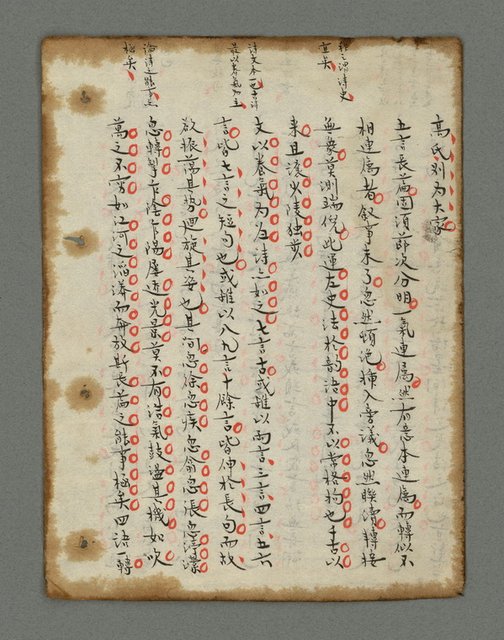 稱之謂詩史
宜矣
詩文本一也古詩
最以養氣為主
論詩之能事無
極矣
高氏別為大家
五言長篇固須節次分明一氣連屬然有意本連屬而轉似不
相連屬者敘事未了忽然頓泥插入旁議忽然聯續轉接
無象莫測端倪此運左史法於韻語中不以常格拘也千古以
來且讓少陵獨步
文以養氣為歸詩亦如之七言古或雜以兩言三言四言五六
言皆七言之短句也或雜以八九言十餘言皆伸於長句而故
欲振蕩其勢迴旋其姿也其間忽徐忽疾忽翕忽張忽渟瀠
忽轉掣乍陰乍陽屢遷光景莫不有浩氣鼓盪其機如吹
萬之不窮如江河之滔漭而奔放斯長篇之能事極矣四語一轉